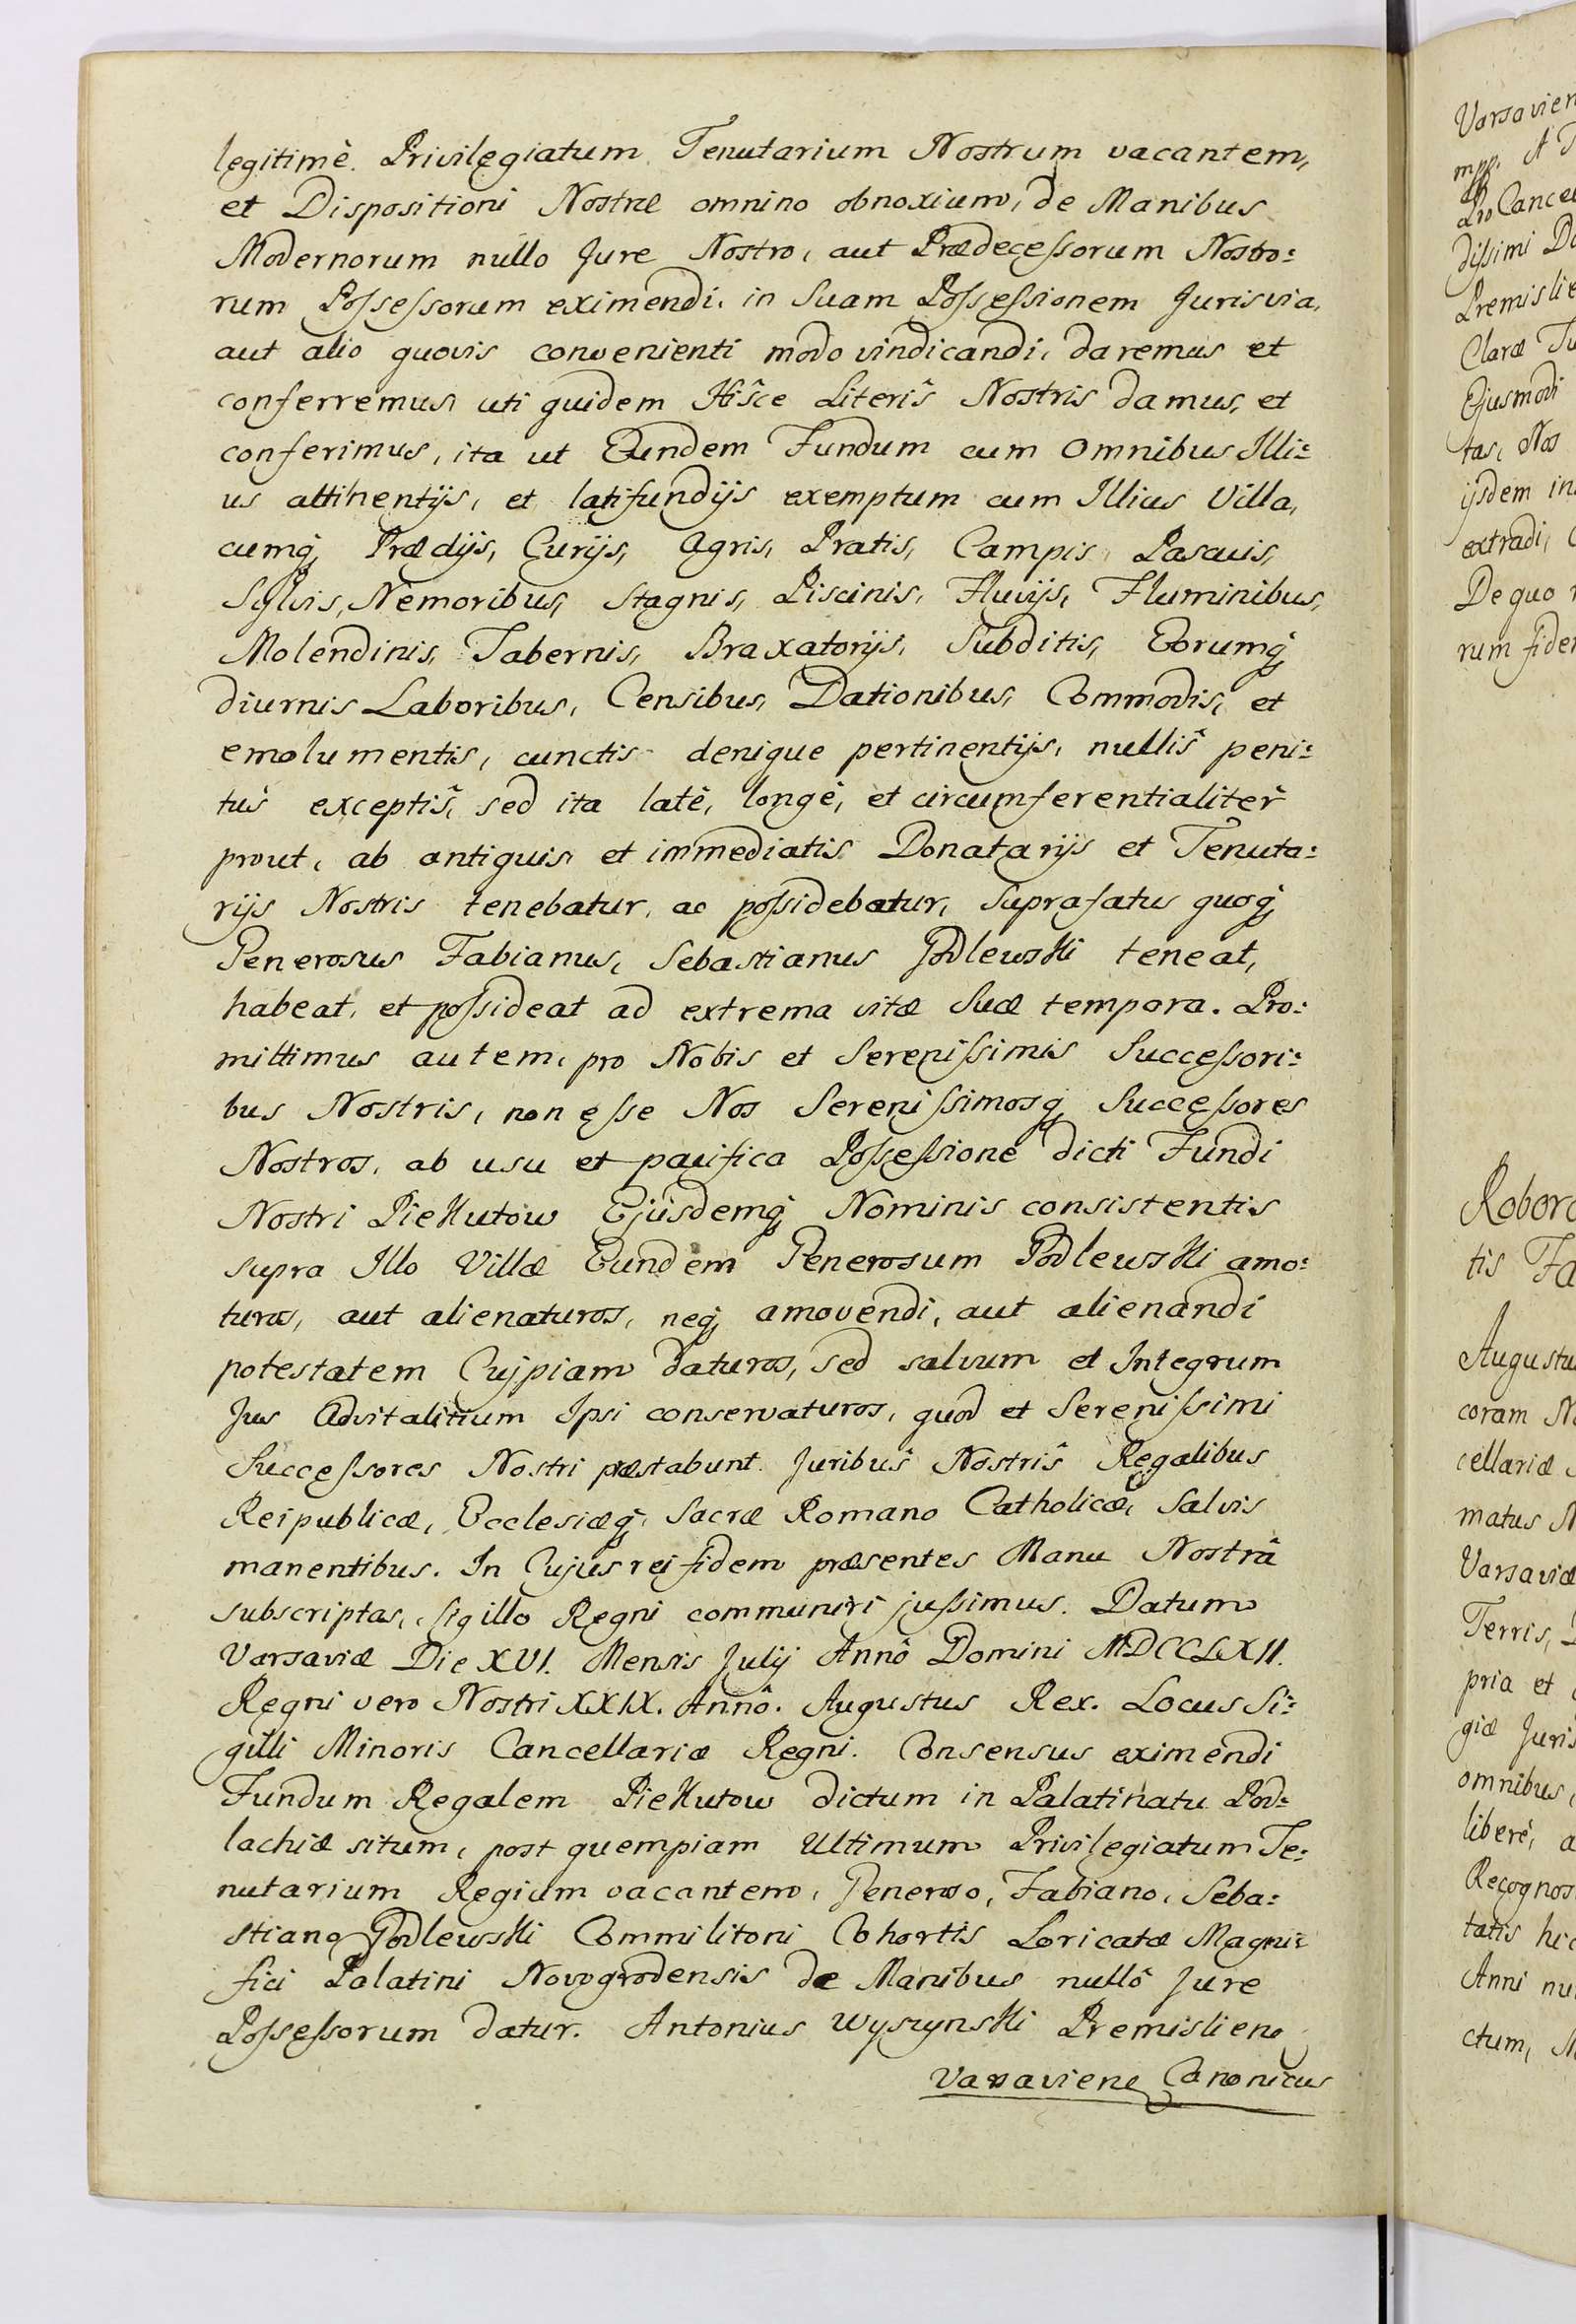 legitimè. Privilegiatum Tenutarium Nostrum vacantem,
et Dispositioni Nostræ omnino obnoxium, de Manibus
Modernorum nullo Jure Nostro, aut Prædecessorum Nostro=
rum Possessorum eximendi, in Suam Possessionem Juris via,
aut alio quovis convenienti modo vindicandi, daremus et
conferremus, uti quidem Hîsce Literîs Nostris damus, et
conferimus, ita ut Eundem Fundum cum Omnibus Illi=
us attinentijs, et latifundijs exemptum cum Illius Villa,
cumq́, Prædijs, Curijs, Agris, Pratis, Campis, Pascuis,
Sylvis, Nemoribus, Stagnis, Piscinis, Fluvijs, Fluminibus,
Molendinis, Tabernis, Braxatorijs, Subditis, Eorumq́,
diurnis Laboribus, Censibus, Dationibus, Commodis, et
emolumentis, cunctis denique pertinentijs, nullîs peni=
tus exceptîs, sed ita latè, longè, et circumferentialitèr
prout, ab antiquis et immediatis Donatarijs et Tenuta=
rijs Nostris tenebatur, ac possidebatur, Suprafatus quoq́,
Generosus Fabianus, Sebastianus Podlewski teneat,
habeat, et possideat ad extrema vitæ Suæ tempora. Pro=
mittimus autem, pro Nobis et Serenissimis Successori=
bus Nostris, non esse Nos Serenissimosq́, Successores
Nostros, ab usu et pacifica Possessione dicti Fundi
Nostri Piekutow Ejusdemq́, Nominis consistentis
supra Illo Villæ Eundem Generosum Podlewski amo=
turos, aut alienaturos, neq́, amovendi, aut alienandi
potestatem Cujpiam daturos, sed salvum et Integrum
Jus Advitalitium Ipsi conservaturos, quod et Serenissimi
Successores Nostri præstabunt. Juribûs Nostrîs Regalibus
Reipublicæ, Ecclesiæq́, Sacræ Romano Catholicæ, Salvis
manentibus. In Cujus rej fidem præsentes Manu Nostrâ
subscriptas, Sigillo Regni communiri jussimus. Datum
Varsaviæ Die XVI. Mensis Julij Annô Domini MDCCLXII.
Regni vero Nostri XXIX. Annô. Augustus Rex. Locus Si=
gilli Minoris Cancellariæ Regni. Consensus eximendi
Fundum Regalem Piekutow dictum in Palatinatu Pod=
lachiæ situm, post quempiam Ultimum Privilegiatum Te=
nutarium Regium vacantem, Generoso, Fabiano, Seba=
stiano Podlewski Commilitoni Cohortis Loricatæ Magni=
fici Palatini Novogrodensis de Manibus nullô Jure
Possessorum datur. Antonius Wyszynski Premislien
Varsavien Canonicus
Varsavien
mpp. A
Pro Cancel
dissimi Do
Premislie
Claræ Tu
Ejusmodi
tas, Nos
ijsdem in
extradi, C
De quo
rum fidem
Robora
tis Fa
Augustu
coram No
cellariæ
matus N
Varsaviæ
Terris,
pria et
giæ Juris
omnibus,
liberè, a
Recognos
tatis hic
Anni nu
ctum, M